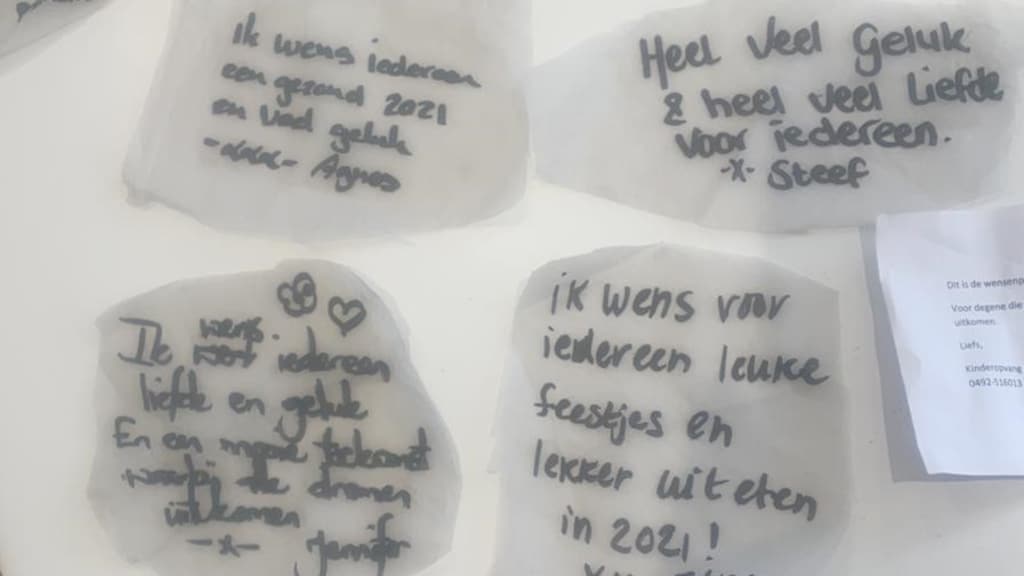 Ik wens iedereen
een gezond 2021
en veel geluk
-xxxx- Agnes
Heel veel Geluk
& heel veel Liefde
voor iedereen.
-x- Steef
wens.
Ik iedereen
liefde en geluk
En een mooie toekomst
waarbij de dromen
uitkomen
-x- Jennifer
ik wens voor
iedereen leuke
feestjes en
lekker uit eten
in 2021!
Dit is de wensenp
Voor degene die
uitkomen.
Liefs,
Kinderopvang
0492-516013